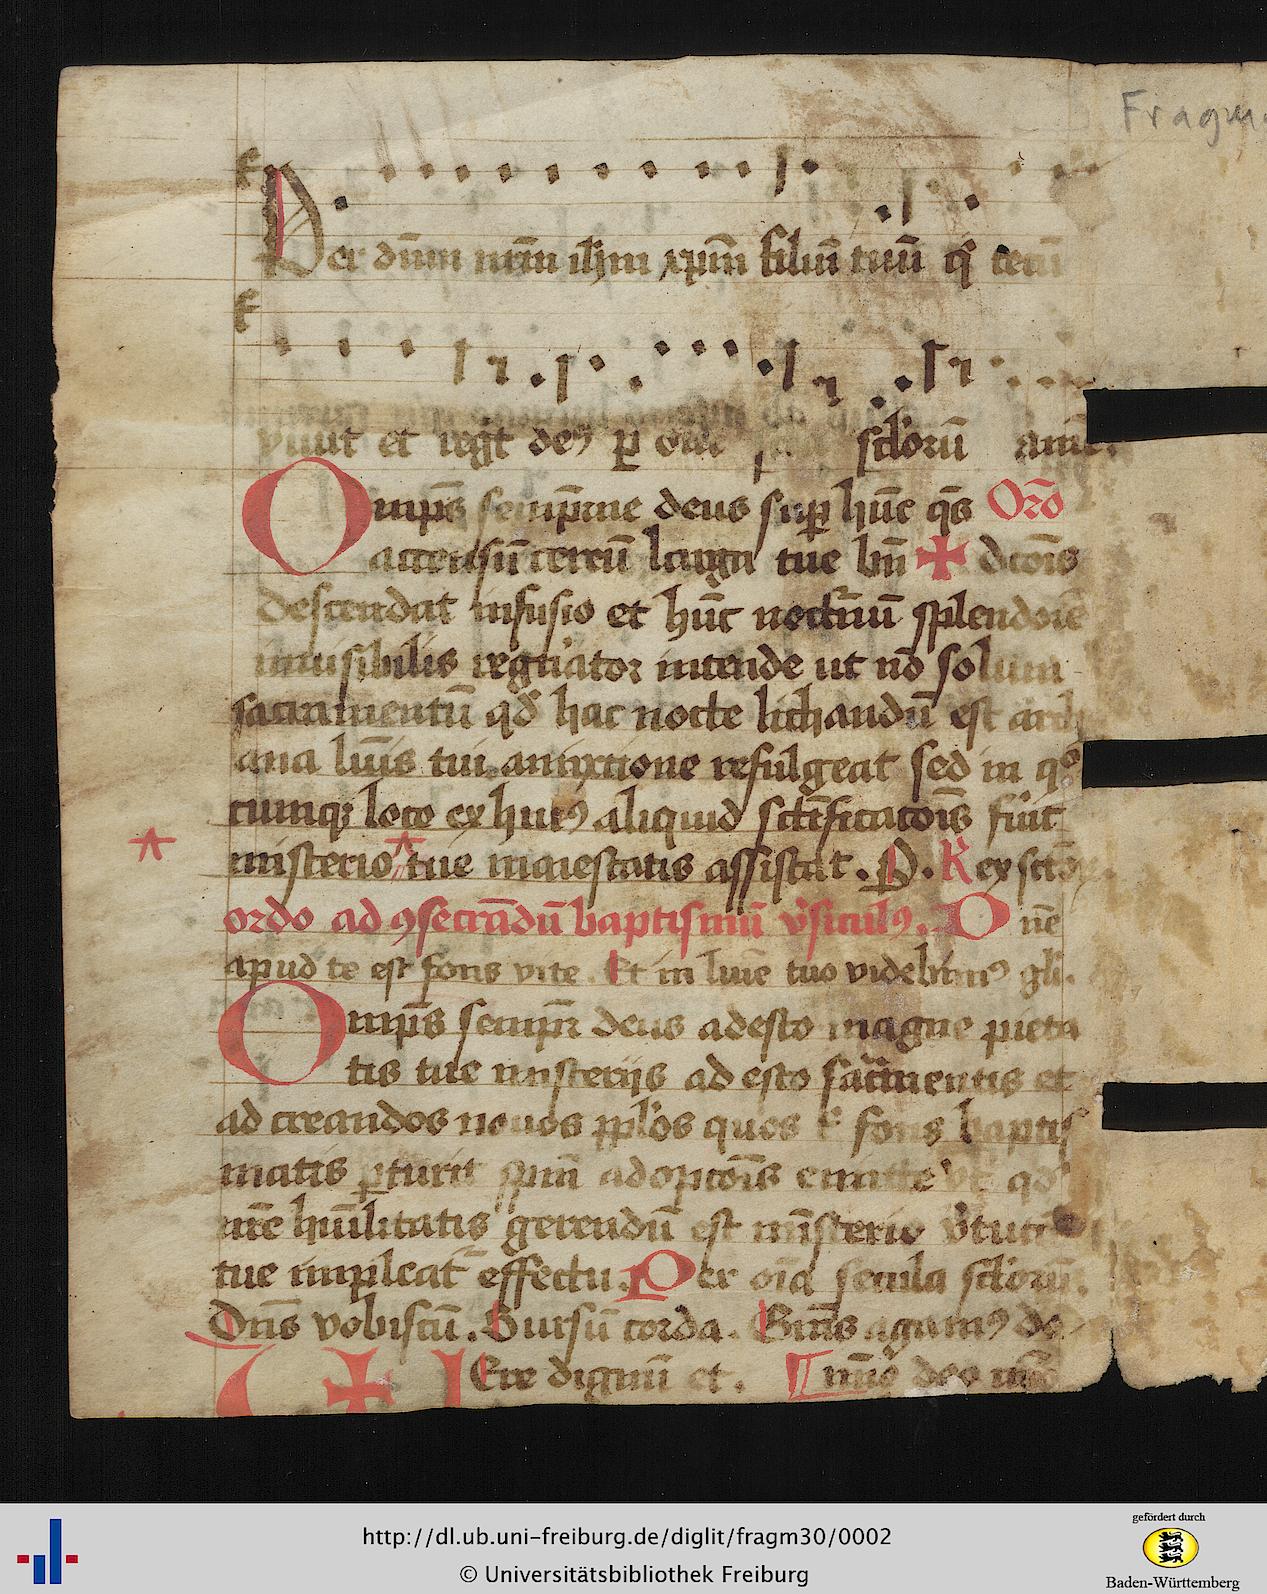 Fragm
Per dn̄m nr̄m ih̄m xp̄m filiū tuū q̄ tecū
viuit et regt deꝰ ꝑ om̄ sclorū am̄
Omp̄s semp̄rne deus suꝑ hūc q̄s Orō
accensū cereū larga tue bn̄ ✠ dcōis
descendat infusio et hūc nocturnū splendorē
inuisibilis reg'nator intende ut nō solum
sacramentū qd̄ hac nocte litandū est arch
ana lum̄is tui amixtione refulgeat sed in qº
cumqꝫ loco ex huiꝰ aliquid sctīficatōis fūit
misterio tue maiestatis assistat. P. R ex sctōꝝ
ordo ad ꝯsecrādū baptismū v̄siculꝰ. Dn̄e
apud te est fons vite. Et in lūie tuo videbimꝰ
Omp̄s semp̄r deus adesto magne pieta
tis tue misterijs adesto sacr̄mentis et
ad creandos nouos pplos quos t' fons baptis
matis ꝑturit spm̄ adoptōis emitte vt qd
nr̄e hūilitatis gerendū est mīsterio v̄tut
tue impleat effectu. Per oīa secula sclorū.
Dn̄s vobiscū. Sursū corda. Gr̄as agamꝰ do
Ere dignū et. deo
http://dl.ub.uni-freiburg.de/diglit/fragm30/0002
© Universitätsbibliothek Freiburg
gefördert durch
Baden-Württemberg